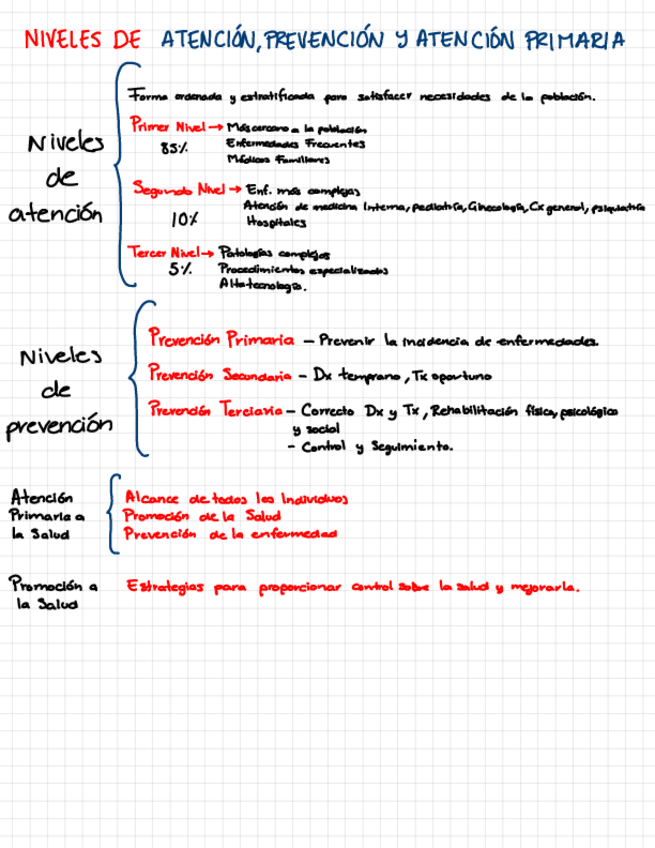 NIVELES DE ATENCIÓN, PREVENCIÓN Y ATENCIÓN PRIMARIA
Niveles de atención
Forma ordenada y estratificada para satisfacer necesidades de la población.
Primer Nivel → Más cercano a la población
85% Enfermedades Frecuentes
Médicos Familiares
Segundo Nivel → Enf. más complejas
10% Atención de medicina Interna, pediatría, Ginecología, Cx general, psiquiatría
Hospitales
Tercer Nivel → Patologías complejas
5% Procedimientos especializados
Alta tecnología.
Niveles de prevención
Prevención Primaria – Prevenir la incidencia de enfermedades.
Prevención Secundaria – Dx temprano, Tx oportuno
Prevención Terciaria – Correcto Dx y Tx, Rehabilitación física, psicológica
y social
- Control y Seguimiento.
Atención
Primaria a
la Salud
Alcance de todos los Individuos
Promoción de la Salud
Prevención de la enfermedad
Promoción a
la Salud
Estrategias para proporcionar control sobre la salud y mejorarla.